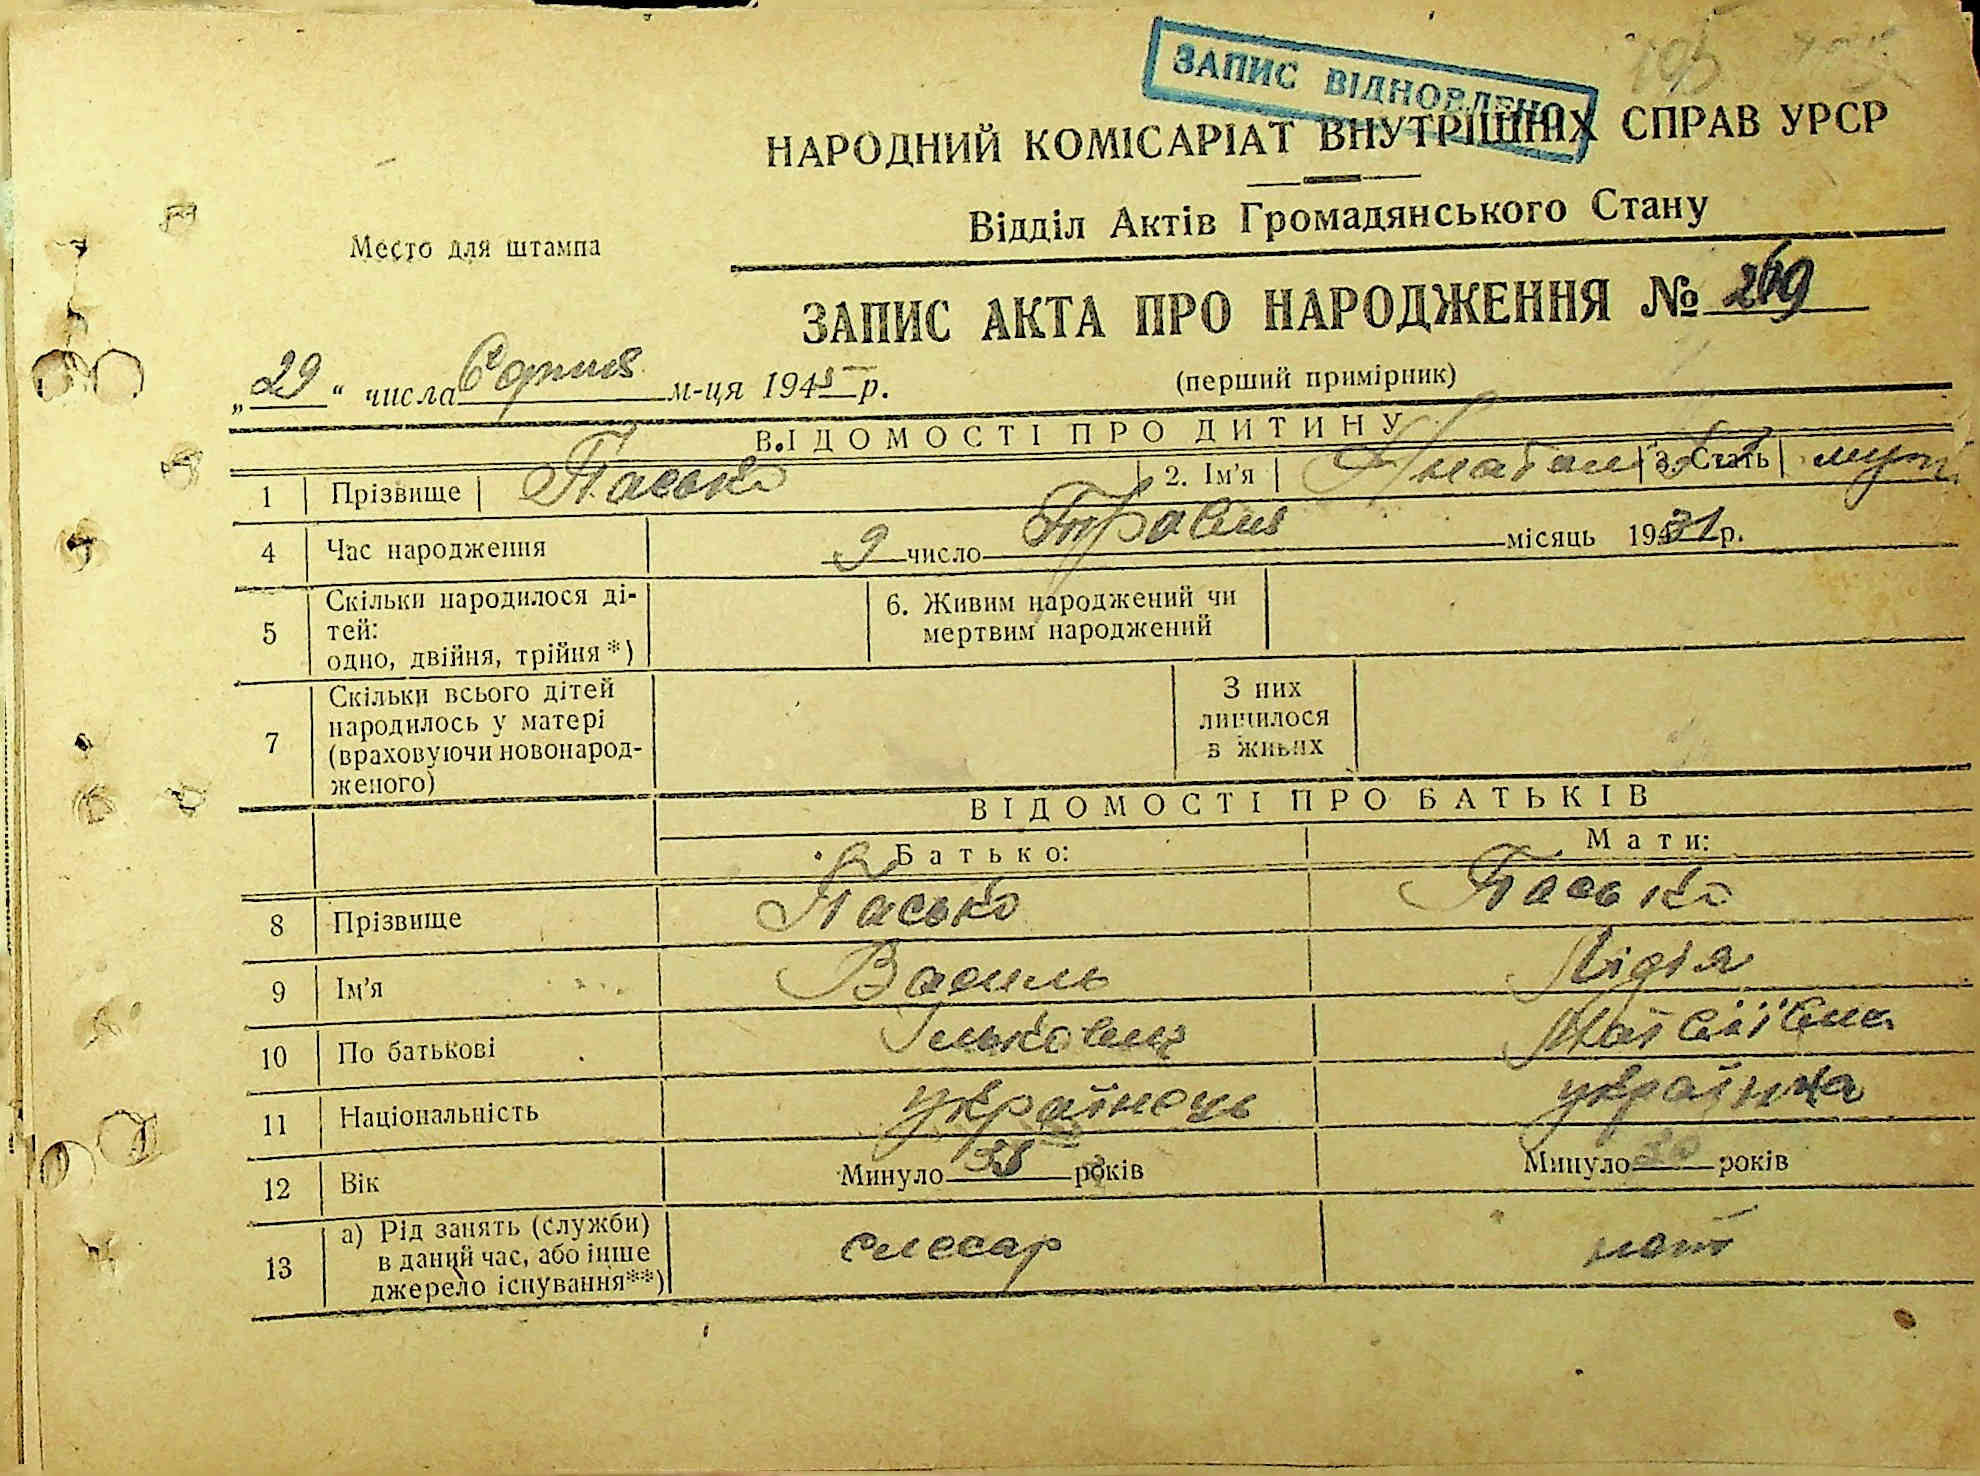 ЗАПИС ВІДНОВЛЕНО
НАРОДНИЙ КОМІСАРІАТ ВНУТРІШНІХ СПРАВ УРСР
Відділ Актів Громадянського Стану
Место для штампа
ЗАПИС АКТА ПРО НАРОДЖЕННЯ №
„29“ числа Серпня м-ця 1945 р.
(перший примірник)
ВІДОМОСТІ ПРО ДИТИНУ
1 Прізвище Пасько 2. Ім'я Анатолій 3. Стать муж
4 Час народження 9 число Травня місяць 1931 р.
5 Скільки народилося ді-
тей:
одно, двійня, трійня*)
6. Живим народжений чи
мертвим народжений
7 Скільки всього дітей
народилось у матері
(враховуючи новонарод-
женого)
З них
лишилося
в живих
ВІДОМОСТІ ПРО БАТЬКІВ
Батько: Мати:
8 Прізвище Пасько Пасько
9 Ім'я Василь Лідія
10 По батькові Ількович Матвіївна
11 Національність українець українка
12 Вік Минуло 38 років Минуло 30 років
13 а) Рід занять (служби)
в даний час, або інше
джерело існування**)
слесар